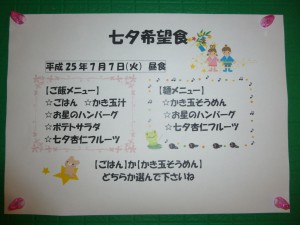 七夕希望食
平成25年7月7日(火) 昼食
【ご飯メニュー】
☆ごはん ☆かき玉汁
☆お星のハンバーグ
☆ポテトサラダ
☆七夕杏仁フルーツ
【麺メニュー】
☆かき玉そうめん
☆お星のハンバーグ
☆七夕杏仁フルーツ
【ごはん】か【かき玉そうめん】
どちらか選んで下さいね